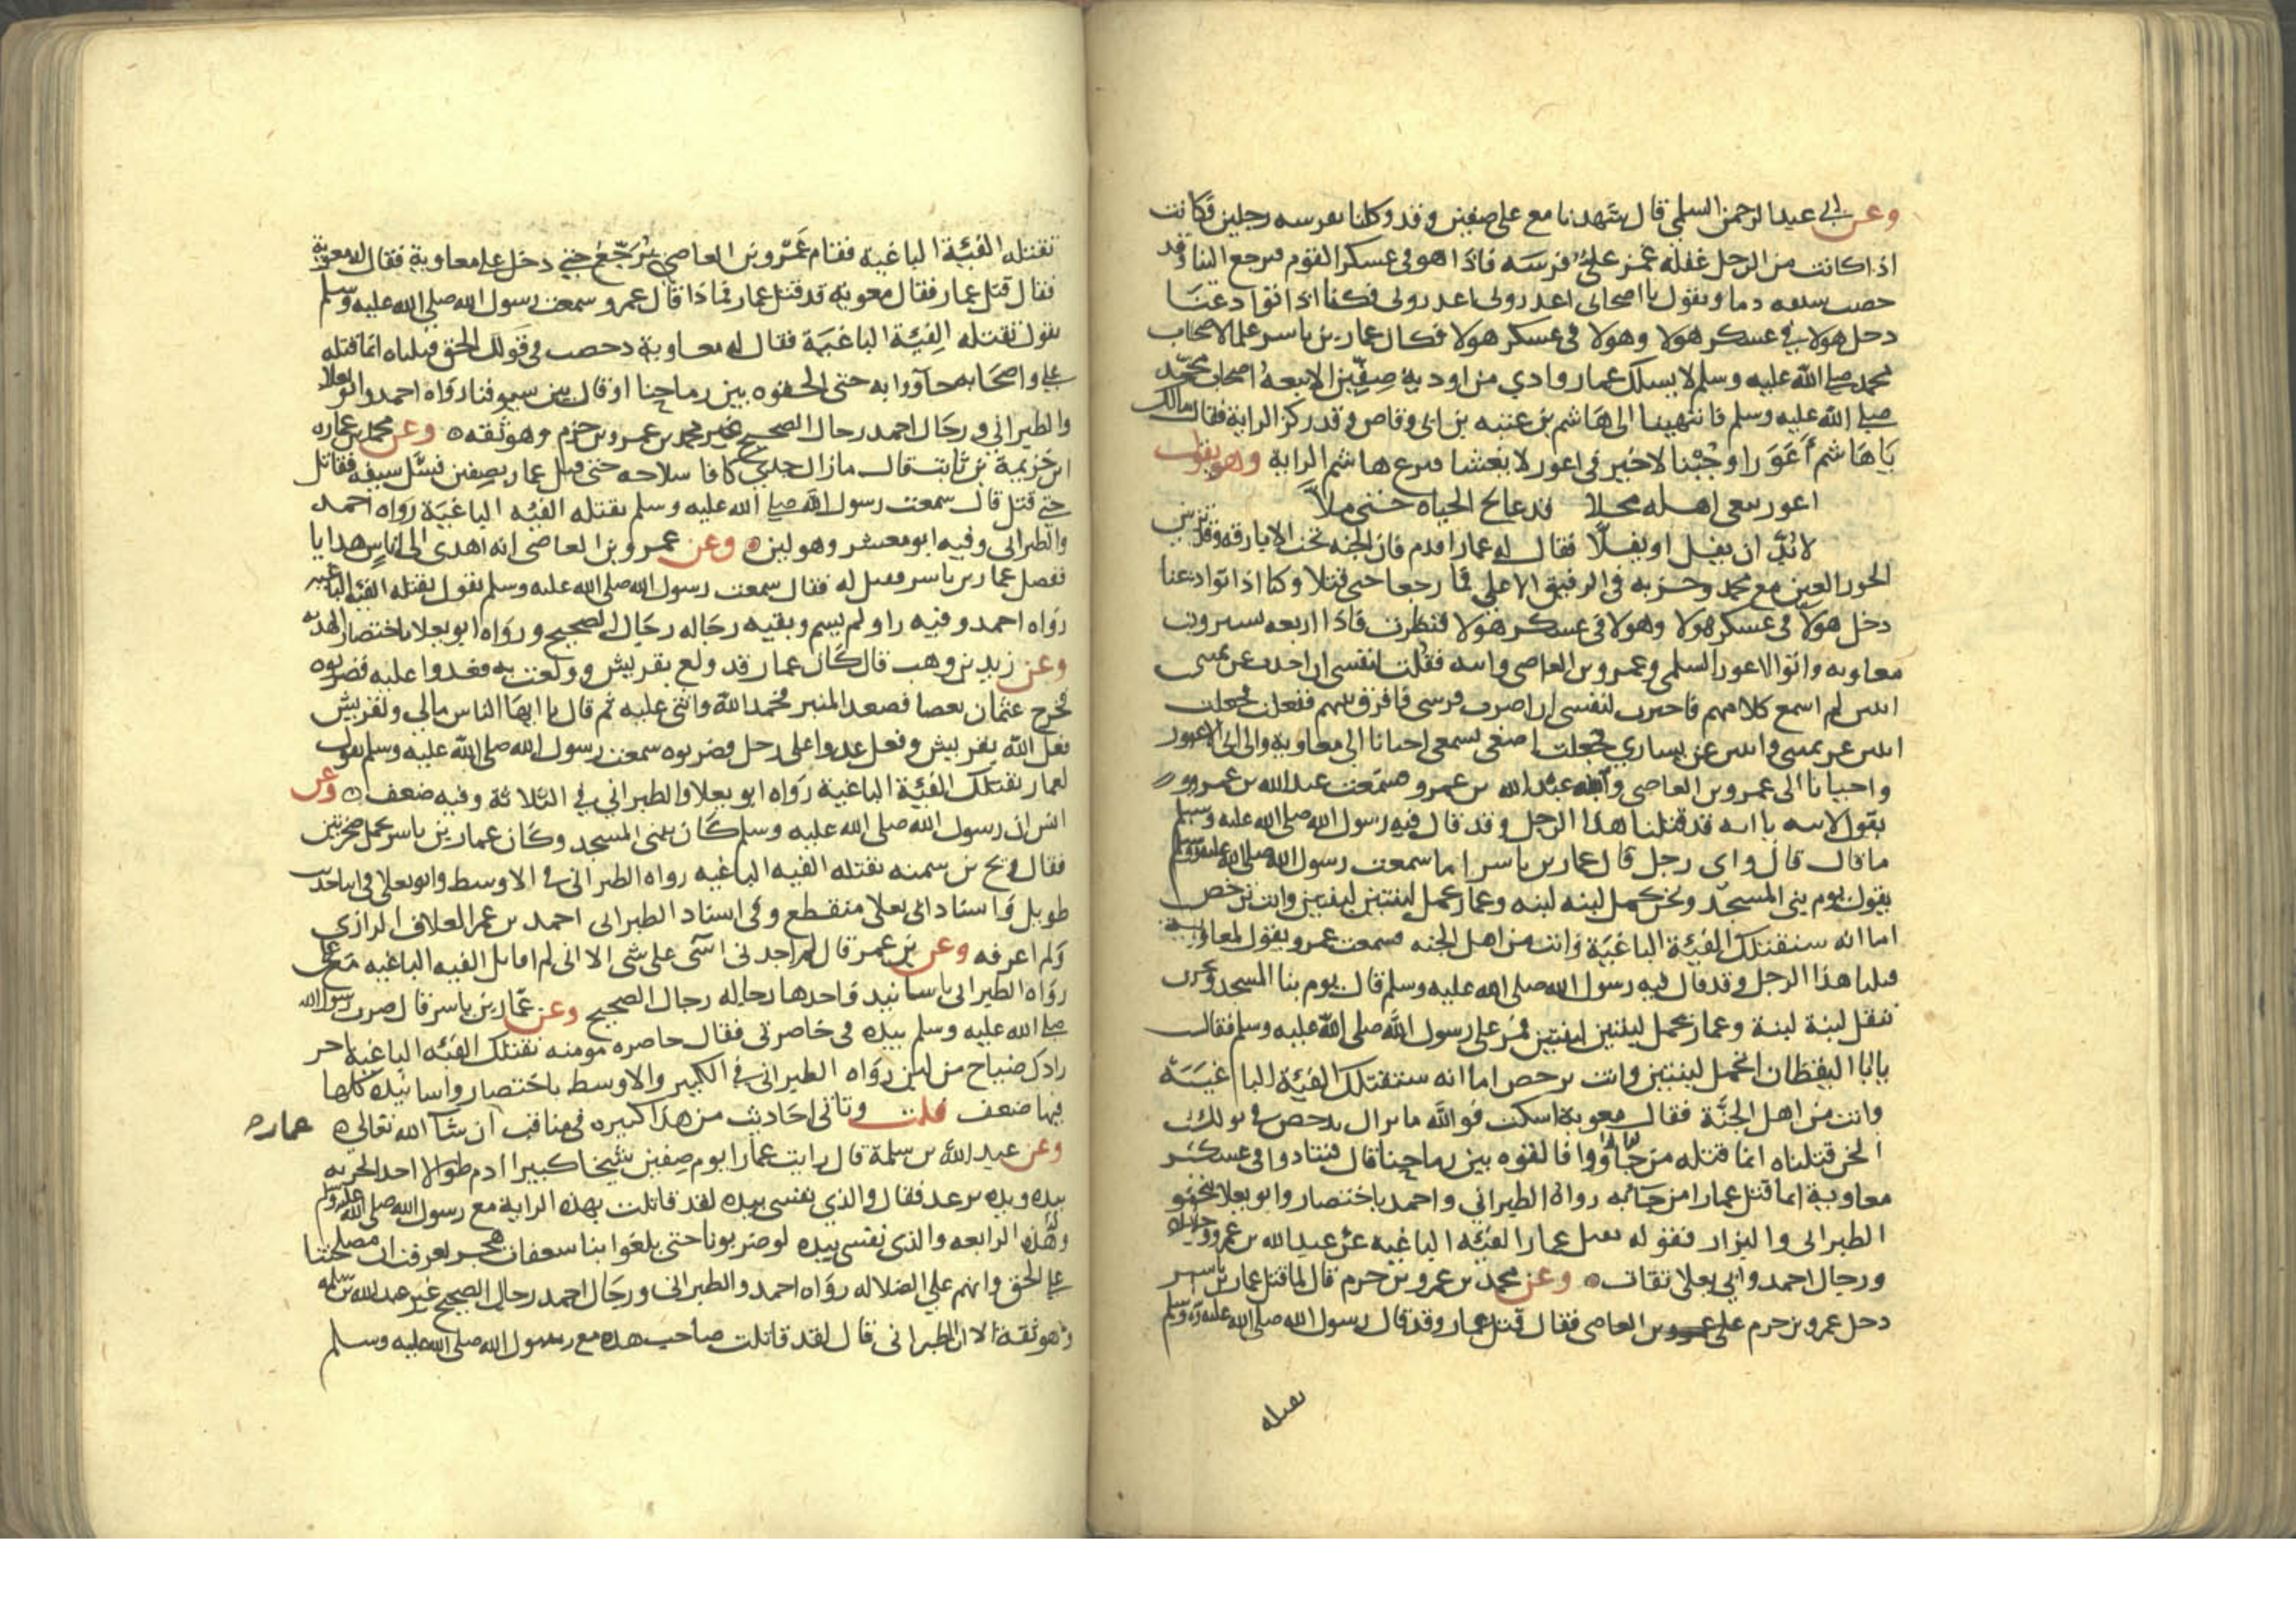 وعن ابي عبد الرحمن السلمي قال شهدنا مع علي صفين وقد وكلنا بفرسه رجلين فكانت
اذا كانت من الرجل غفله غمز علي فرسه فاذا هو في عسكر القوم فيرجع الينا وقد
خضب سيفه دما ويقول يا اصحابي اعذروني اعذروني فكنا اذا توادعنا
دخل هولا في عسكر هولا وهولا في عسكر هولا فكان عمار بن ياسر علما لاصحاب
محمد صلي الله عليه وسلم لا يسلك عمار وادي من اودية صفين الا تبعه اصحاب محمد
صلي الله عليه وسلم فانتهينا الى هاشم بن عتبه بن ابي وقاص وقد ركز الراية فقال مالك
يا هاشم أعورا وجبنا لا خير في اعور لا يغشا فنزع هاشم الراية وهو يقول
اعور يبغي اهله محلا قد عالج الحياه حتى ملا
لا بد ان يفل او يفلا فقال له عمار اقدم فان الجنه تحت الابارقه وقد تزين
الحور العين مع محمد وحزبه في الرفيق الاعلي فما رجعا حتى قتلا وكنا اذا توادعنا
دخل هولا في عسكر هولا وهولا في عسكر هولا فنظرت فاذا اربعه يسيرون
معاويه وابو الاعور السلمي وعمرو بن العاصي وابنه فقلت لنفسي ان اخذت عن يميني
اثنين لم اسمع كلامهم فاخترت لنفسي ان اضرب فرسي فافرق بينهم ففعلت فجعلت
اثنين عن يميني واثنين عن يساري فجعلت اصغي بسمعي احيانا الي معاوية والى ابي الاعور
واحيانا الى عمرو بن العاصي وابنه عبد الله بن عمرو فسمعت عبد الله بن عمرو
يقول لابيه يا ابه قد قتلنا هذا الرجل وقد قال فيه رسول الله صلى الله عليه وسلم
ما قال قال واي رجل قال عمار بن ياسر اما سمعت رسول الله صلى الله عليه وسلم
يقول يوم بني المسجد ونحن نحمل لبنه لبنه وعمار يحمل لبنتين لبنتين وانت ترحض
اما انه ستقتلك الفئة الباغية وانت من اهل الجنه فسمعت عمرو يقول لمعاوية
قتلنا هذا الرجل وقد قال فيه رسول الله صلى الله عليه وسلم قال يوم بنا المسجد ونحن
ننقل لبنة لبنة وعمار يحمل لبنتين لبنتين فمر على رسول الله صلى الله عليه وسلم فقال
يا ابا اليقظان اتحمل لبنتين وانت ترحض اما انه ستقتلك الفئة الباغية
وانت من اهل الجنة فقال معوية اسكت فوالله ما تزال تدحض في بولك
انحن قتلناه انما قتله من جاؤا به فالقوه بين رماحنا قال فتنادوا في عسكر
معاوية انما قتل عمارا من جا به رواه الطبراني واحمد باختصار وابو يعلا بنحو
الطبراني والبزار فقوله تقتل عمارا الفئه الباغيه عن عبد الله بن عمرو وحده
ورجال احمد وابي يعلا ثقات وعن محمد بن عمرو بن حزم قال لما قتل عمار بن ياسر
دخل عمرو بن حزم على عمرو بن العاصي فقال قتل عمار وقد قال رسول الله صلى الله عليه وسلم
تقتله
تقتله الفئة الباغية فقام عمرو بن العاصي يرجع حتي دخل علي معاوية فقال له معوية
فقال قتل عمار فقال معوية قد قتل عمار فماذا قال عمرو سمعت رسول الله صلى الله عليه وسلم
يقول تقتله الفئة الباغية فقال له معاوية دحضت في قولك انحن قتلناه انما قتله
علي واصحابه جاؤا به حتى القوه بين رماحنا او قال بين سيوفنا رواه احمد وابو يعلا
والطبراني ورجال احمد رجال الصحيح غير محمد بن عمرو بن حزم وهو ثقه وعن محمد بن عماره
ابن خزيمة بن ثابت قال مازال جدي كافا سلاحه حتى قتل عمار بصفين فسل سيفه فقاتل
حتي قتل قال سمعت رسول الله صلي الله عليه وسلم تقتله الفئه الباغية رواه احمد
والطبراني وفيه ابو معشر وهو لين وعن عمرو بن العاصي انه اهدى الى ناس هدايا
ففضل عمار بن ياسر فقيل له فقال سمعت رسول الله صلى الله عليه وسلم يقول تقتله الفئه الباغيه
رواه احمد وفيه راو لم يسم وبقيه رجاله رجال الصحيح ورواه ابو يعلا باختصار الهديه
وعن زيد بن وهب قال كان عمار قد ولع بقريش وولعت به فغدوا عليه فضربوه
فخرج عثمان بعصا فصعد المنبر فحمد الله واثنى عليه ثم قال يا ايها الناس مالي ولقريش
فعل الله بقريش وفعل عدوا على رجل فضربوه سمعت رسول الله صلى الله عليه وسلم يقول
لعمار تقتلك الفئة الباغية رواه ابو يعلا والطبراني في الثلاثة وفيه ضعف وعن
انس ان رسول الله صلى الله عليه وسلم كان يبني المسجد وكان عمار بن ياسر يحمل صخرتين
فقال ويح بن سمية تقتله الفيه الباغيه رواه الطبراني في الاوسط وابو يعلي في اثنا حديث
طويل واسناد ابي يعلا منقطع وفي اسناد الطبراني احمد بن عمر العلاف الرازي
ولم اعرفه وعن بن عمر قال لم اجدني آسى على شي الا اني لم اقاتل الفيه الباغيه مع علي
رواه الطبراني باسانيد واحدها رجاله رجال الصحيح وعن عمار بن ياسر قال ضرب رسول الله
صلي الله عليه وسلم بيده في خاصرتي فقال خاصره مومنه تقتلك الفئه الباغية اخر
زادك ضياح من لبن رواه الطبراني في الكبير والاوسط باختصار واسانيده كلها
فيها ضعف قلت وتاتي احاديث من هذا كبيره في مناقب ان شا الله تعالى عمار
وعن عبد الله بن سلمة قال رايت عمارا يوم صفين شيخا كبيرا ادم طوالا اخذ الحربه
بيده ويده ترعد فقال والذي نفسي بيده لقد قاتلت بهذه الراية مع رسول الله صلى الله عليه وسلم
وهذه الرابعه والذي نفسي بيده لو ضربونا حتى بلغوا بنا سعفات هجر لعرفت ان مصلحتنا
علي الحق وانهم علي الضلاله رواه احمد والطبراني ورجال احمد رجال الصحيح غير عبد الله بن سلمه
وهو ثقة الا ان الطبراني قال لقد قاتلت صاحب هذه مع رسول الله صلى الله عليه وسلم